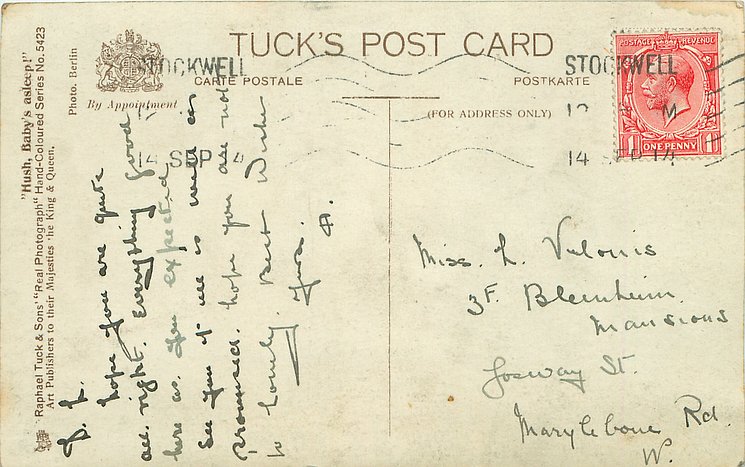 TUCK'S POST CARD
CARTE POSTALE
POSTKARTE
By Appointment
(FOR ADDRESS ONLY)
STOCKWELL
14 SEP 14
STOCKWELL
14 SEP 14
POSTAGE REVENUE
1 ONE PENNY 1
"Hush, Baby's asleep!"
Photo. Berlin
Raphael Tuck & Sons' "Real Photograph" Hand-Coloured Series No. 5423
Art Publishers to their Majesties the King & Queen.
D. L.
hope you are quite
all right. Everything good
here as you expected
See you if all is well as
promised. hope you are not
so lonely. Best Wishes
Yours A.
Miss. L.
3F. Blenheim
Mansions
St.
Marylebone Rd.
W.